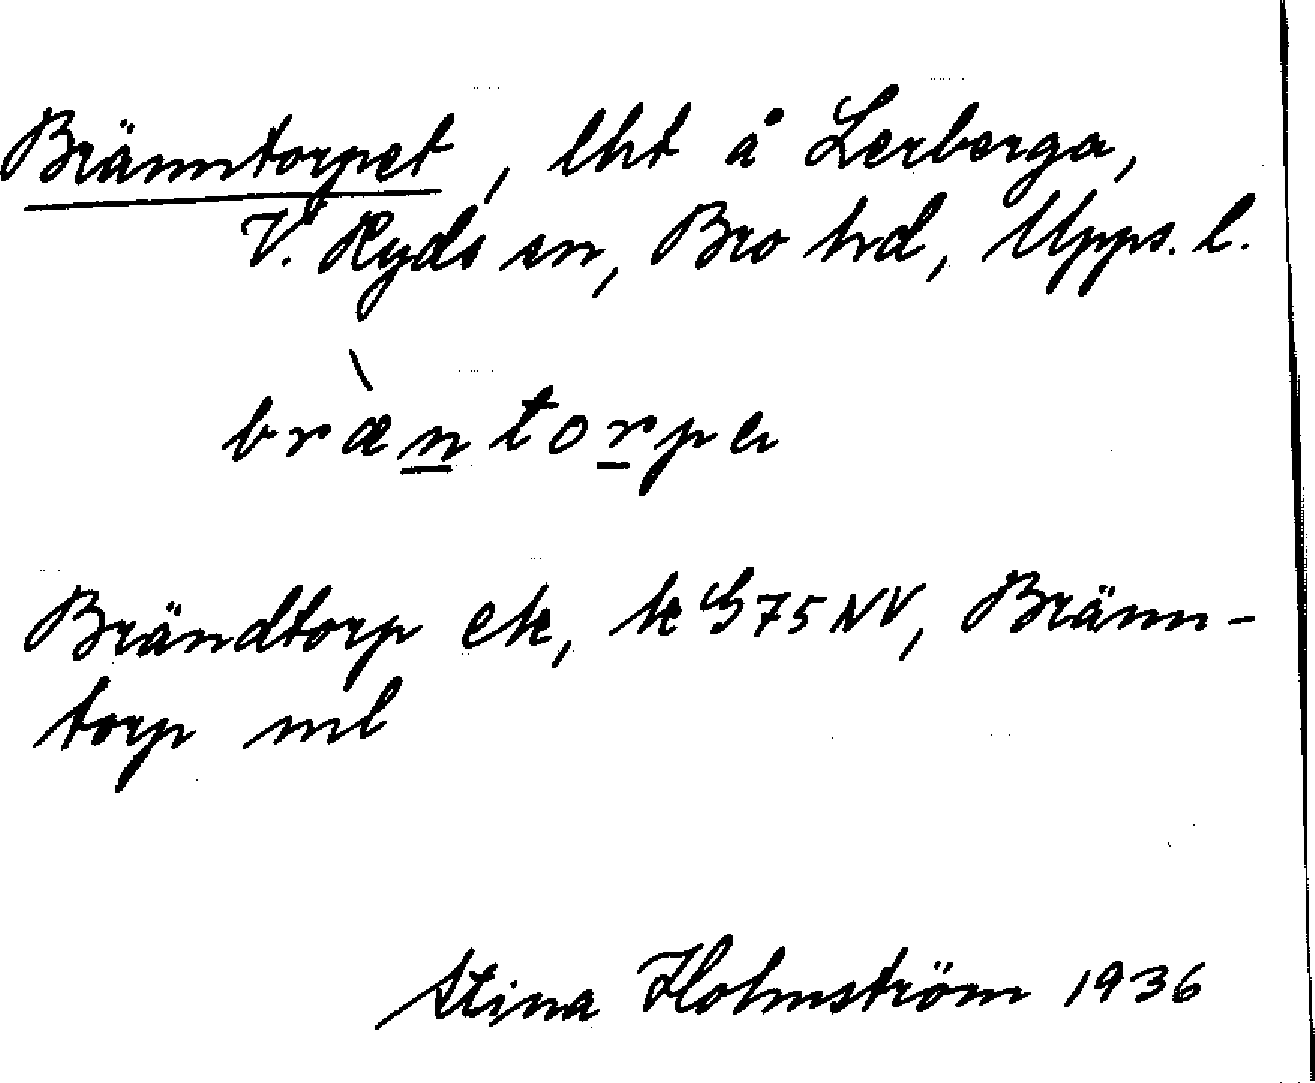 Bränntorpet, lht å Lerberga,
V. Ryds sn, Bro hd, Upps. l.
bræ̀n̲tor̲pa
Brändtorp ek, k G 75 NV, Bränn-
torp ml
Stina Holmström 1936